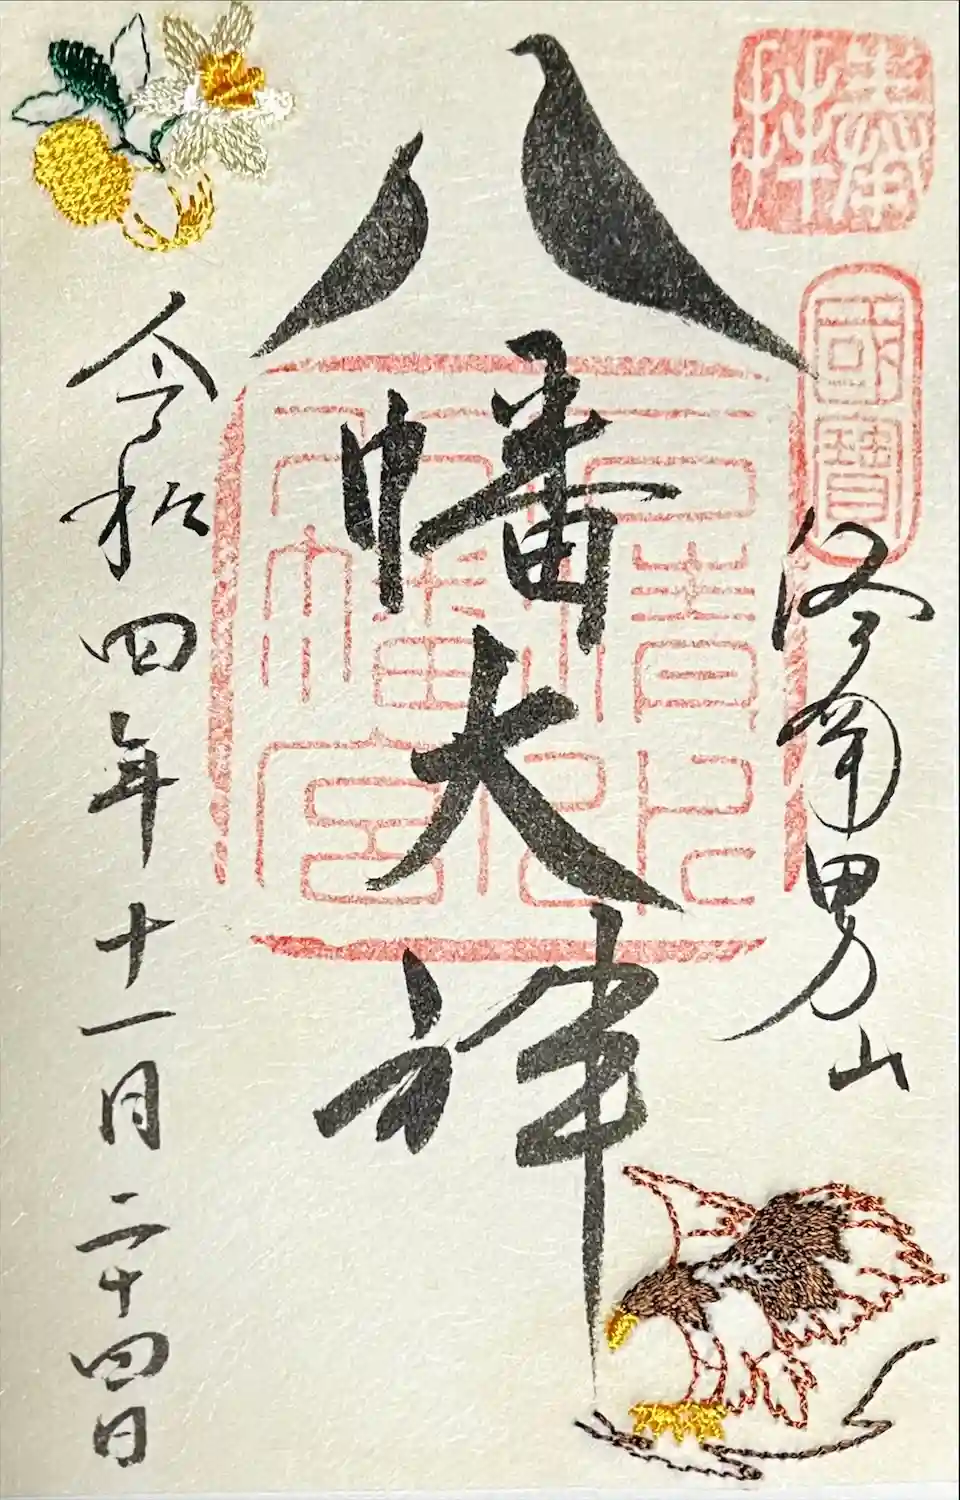 奉拝
國寶
洛南男山
八幡大神
石清水八幡宮
令和四年十一月二十四日